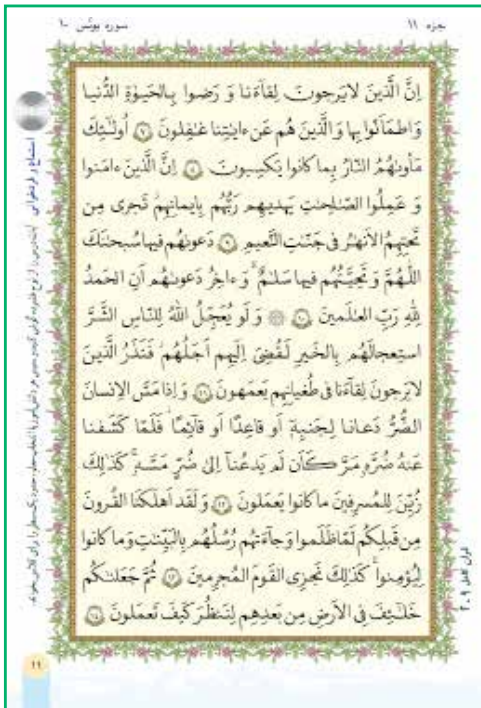 جزء ۱۱
سوره یونس ۱۰
اِنَّ الَّذینَ لایَرجونَ لِقاۤءَنا وَ رَضوا بِالحَیوٰةِ الدُّنیا
وَ اطمَاَنّوا بِها وَ الَّذینَ هُم عَن ءایٰتِنا غٰفِلونَ ۷ اُولٰۤئِكَ
مَأوٰىهُمُ النّارُ بِما كانوا یَكسِبونَ ۸ اِنَّ الَّذینَ ءامَنوا
وَ عَمِلُوا الصّٰلِحٰتِ یَهدیهِم رَبُّهُم بِایمانِهِم تَجری مِن
تَحتِهِمُ الاَنهٰرُ فی جَنّٰتِ النَّعیمِ ۹ دَعوٰىهُم فیها سُبحٰنَكَ
اللّٰهُمَّ وَ تَحِیَّتُهُم فیها سَلٰمٌ وَ ءاخِرُ دَعوٰىهُم اَنِ الحَمدُ
لِلّٰهِ رَبِّ العٰلَمینَ ۱۰ وَ لَو یُعَجِّلُ اللّٰهُ لِلنّاسِ الشَّرَّ
استِعجالَهُم بِالخَیرِ لَقُضِیَ اِلَیهِم اَجَلُهُم فَنَذَرُ الَّذینَ
لایَرجونَ لِقاۤءَنا فی طُغیانِهِم یَعمَهونَ ۱۱ وَ اِذا مَسَّ الاِنسانَ
الضُّرُّ دَعانا لِجَنبِهۤ اَو قاعِدًا اَو قاۤئِمًا فَلَمّا كَشَفنا
عَنهُ ضُرَّهو مَرَّ كَاَن لَم یَدعُناۤ اِلیٰ ضُرٍّ مَسَّهو كَذٰلِكَ
زُیِّنَ لِلمُسرِفینَ ما كانوا یَعمَلونَ ۱۲ وَ لَقَد اَهلَكنَا القُرونَ
مِن قَبلِكُم لَمّا ظَلَموا وَ جاۤءَتهُم رُسُلُهُم بِالبَیِّنٰتِ وَ ما كانوا
لِیُؤمِنوا كَذٰلِكَ نَجزِی القَومَ المُجرِمینَ ۱۳ ثُمَّ جَعَلنٰكُم
خَلٰۤئِفَ فِی الاَرضِ مِن بَعدِهِم لِنَنظُرَ كَیفَ تَعمَلونَ ۱۴
استماع و فردخوانی
۱۱